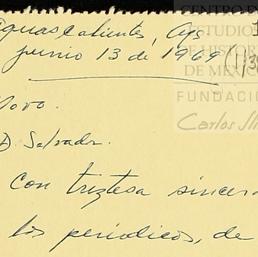 CENTRO DE
ESTUDIOS
DE HISTORIA
DE MÉXICO
FUNDACIÓN
Carlos Sli
guascalientes, Ags
junio 13 de 1969
Novo.
D. Salvador
Con triztesa sincera
los periodicos, de